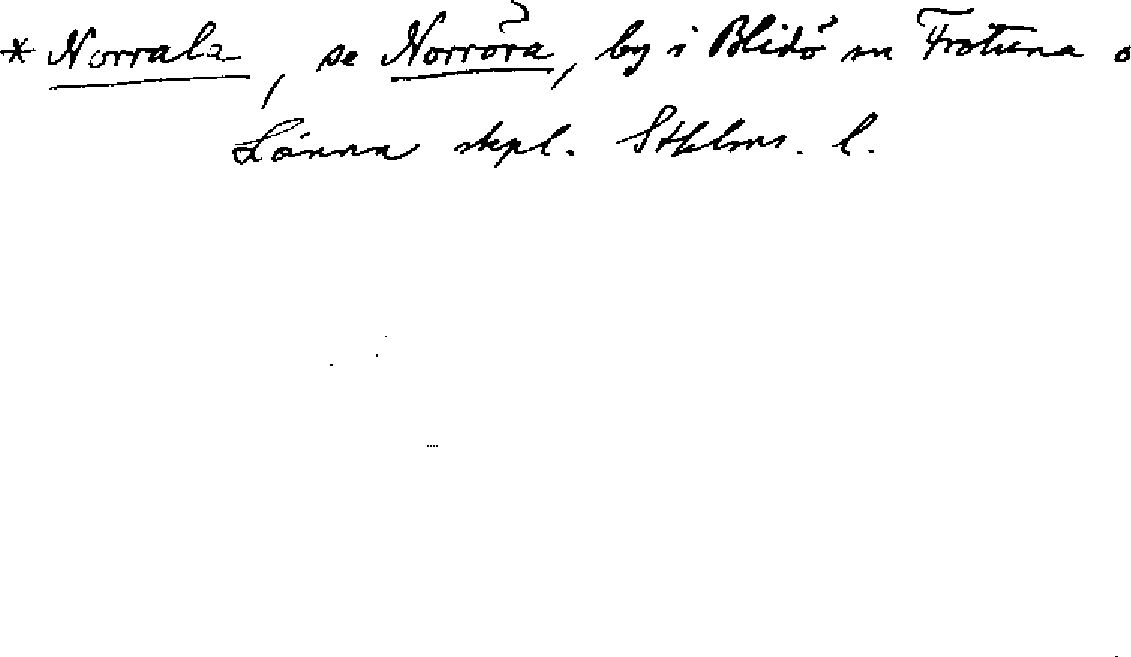 * Norrala, se Norröra, by i Blidö sn Frötuna o
Länna skpl. Sthlms. l.